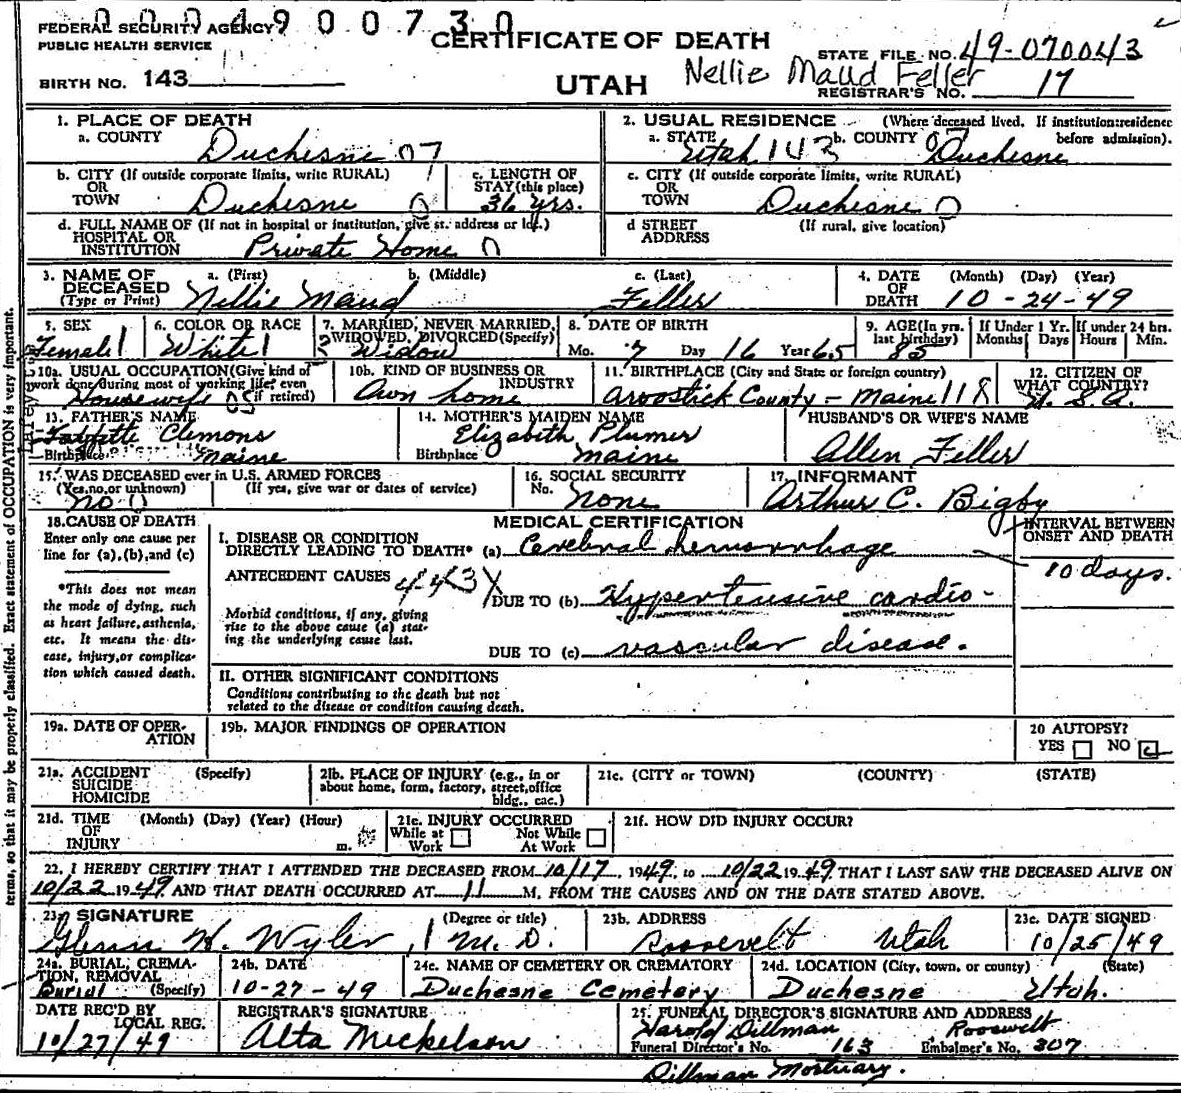 0 0 0 4 9 0 0 7 3 0
FEDERAL SECURITY AGENCY
PUBLIC HEALTH SERVICE
CERTIFICATE OF DEATH
STATE FILE NO. 49-070043
BIRTH NO. 143
UTAH
Nellie Maud Feller
REGISTRAR'S NO. 17
1. PLACE OF DEATH
a. COUNTY
Duchesne 07
2. USUAL RESIDENCE (Where deceased lived. If institution: residence before admission).
a. STATE Utah 143 b. COUNTY 07 Duchesne
b. CITY (If outside corporate limits, write RURAL)
OR
TOWN Duchesne 0
c. LENGTH OF
STAY (this place)
36 yrs.
c. CITY (If outside corporate limits, write RURAL)
OR
TOWN Duchesne 0
d. FULL NAME OF (If not in hospital or institution, give st. address or loc.)
HOSPITAL OR
INSTITUTION Private Home 0
d STREET (If rural, give location)
ADDRESS
3. NAME OF a. (First) b. (Middle) c. (Last)
DECEASED
(Type or Print) Nellie Maud Feller
4. DATE (Month) (Day) (Year)
OF
DEATH 10-24-49
5. SEX
Female 1
6. COLOR OR RACE
White 1
7. MARRIED, NEVER MARRIED,
WIDOWED, DIVORCED (Specify)
Widow
8. DATE OF BIRTH
Mo. 7 Day 16 Year 65
9. AGE (In yrs.
last birthday)
85
If Under 1 Yr.
Months Days
If under 24 hrs.
Hours Min.
10a. USUAL OCCUPATION (Give kind of
work done during most of working life, even
if retired)
Housewife 05
10b. KIND OF BUSINESS OR
INDUSTRY
Own home
11. BIRTHPLACE (City and State or foreign country)
Aroostick County - Maine 118
12. CITIZEN OF
WHAT COUNTRY?
U. S. A.
13. FATHER'S NAME
Clemons
Birthplace Maine
14. MOTHER'S MAIDEN NAME
Elizabeth Plumer
Birthplace Maine
HUSBAND'S OR WIFE'S NAME
Allen Feller
15. WAS DECEASED ever in U.S. ARMED FORCES
(Yes, no, or unknown) (If yes, give war or dates of service)
no 0
16. SOCIAL SECURITY
No. None
17. INFORMANT
Arthur C. Bigby
18. CAUSE OF DEATH
Enter only one cause per
line for (a), (b), and (c)
*This does not mean
the mode of dying, such
as heart failure, asthenia,
etc. It means the dis-
ease, injury, or complica-
tion which caused death.
MEDICAL CERTIFICATION
I. DISEASE OR CONDITION
DIRECTLY LEADING TO DEATH* (a) Cerebral hemorrhage
INTERVAL BETWEEN
ONSET AND DEATH
10 days.
ANTECEDENT CAUSES 443X
DUE TO (b) Hypertensive cardio-
Morbid conditions, if any, giving
rise to the above cause (a) stat-
ing the underlying cause last.
DUE TO (c) vascular disease.
II. OTHER SIGNIFICANT CONDITIONS
Conditions contributing to the death but not
related to the disease or condition causing death.
19a. DATE OF OPER-
ATION
19b. MAJOR FINDINGS OF OPERATION
20 AUTOPSY?
YES NO
21a. ACCIDENT (Specify)
SUICIDE
HOMICIDE
21b. PLACE OF INJURY (e.g., in or
about home, form, factory, street, office
bldg., cac.)
21c. (CITY or TOWN) (COUNTY) (STATE)
21d. TIME (Month) (Day) (Year) (Hour)
OF
INJURY m.
21e. INJURY OCCURRED
While at Work
Not While At Work
21f. HOW DID INJURY OCCUR?
22. I HEREBY CERTIFY THAT I ATTENDED THE DECEASED FROM 10/17, 1949, to 10/22 1949 THAT I LAST SAW THE DECEASED ALIVE ON
10/22 1949 AND THAT DEATH OCCURRED AT 11 M. FROM THE CAUSES AND ON THE DATE STATED ABOVE.
23a SIGNATURE (Degree or title)
W. Wyler, M. D.
23b. ADDRESS
Roosevelt Utah
23c. DATE SIGNED
10/25/49
24a. BURIAL, CREMA-
TION, REMOVAL
Burial (Specify)
24b. DATE
10-27-49
24c. NAME OF CEMETERY OR CREMATORY
Duchesne Cemetery
24d. LOCATION (City, town, or county) (State)
Duchesne Utah.
DATE REC'D BY
LOCAL REG.
10/27/49
REGISTRAR'S SIGNATURE
Alta Mickelson
25. FUNERAL DIRECTOR'S SIGNATURE AND ADDRESS
Harold Dillman Roosevelt
Funeral Director's No. 163 Embalmer's No. 307
Dillman Mortuary.
terms, so that it may be properly classified. Exact statement of OCCUPATION is very important.